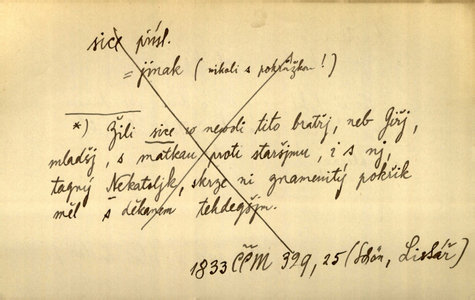 sice přísl.
= jinak (nikoli s pohrůžkou!)
*) Žili sice w newoli tito bratřj, neb Giřj,
mladšj, s matkau proti staršjmu, i s nj,
tagný Nekatoljk, skrze ni gnamenitý pokřik
měl s děkanem tehdegšjm.
1833 ČČM 329, 25 (Schön, Lissář)